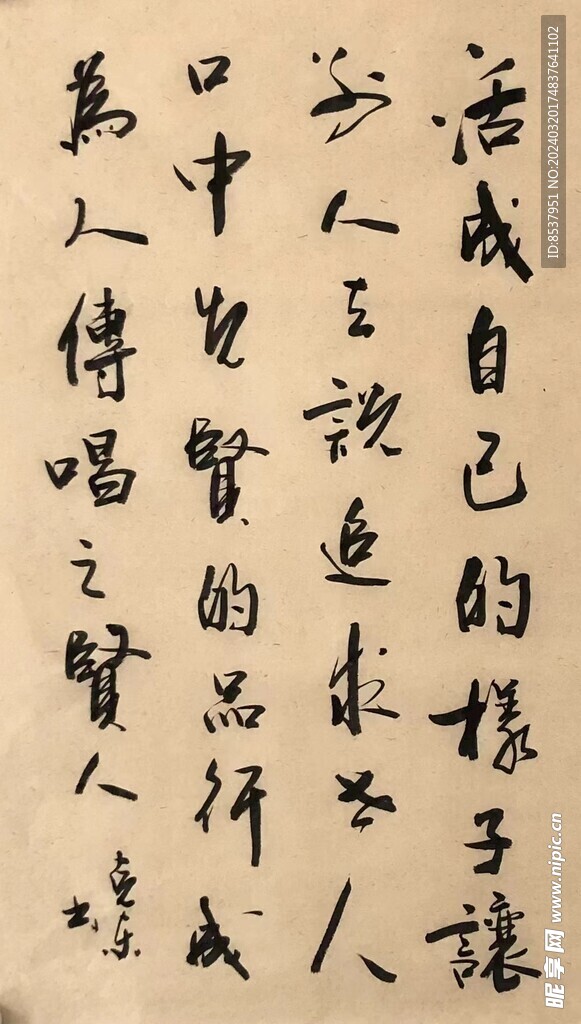 活成自己的樣子讓
别人去説追求世人
口中先賢的品行成
為人傳唱之賢人
克東
書
ID:8537951 NO:20240320174837641102
昵享网 www.nipic.cn